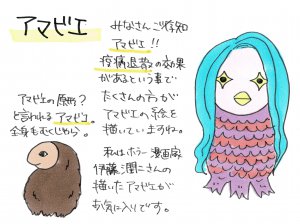 アマビエ
みなさんご存知
アマビエ!!
疫病退散の効果
があるという事で
たくさんの方が
アマビエの絵を
描いていますね。
私はホラー漫画家
伊藤潤二さんの
描いたアマビエが
お気に入りです。
アマビエの原形?
と言われるアマビコ。
全身もじゃもじゃ。